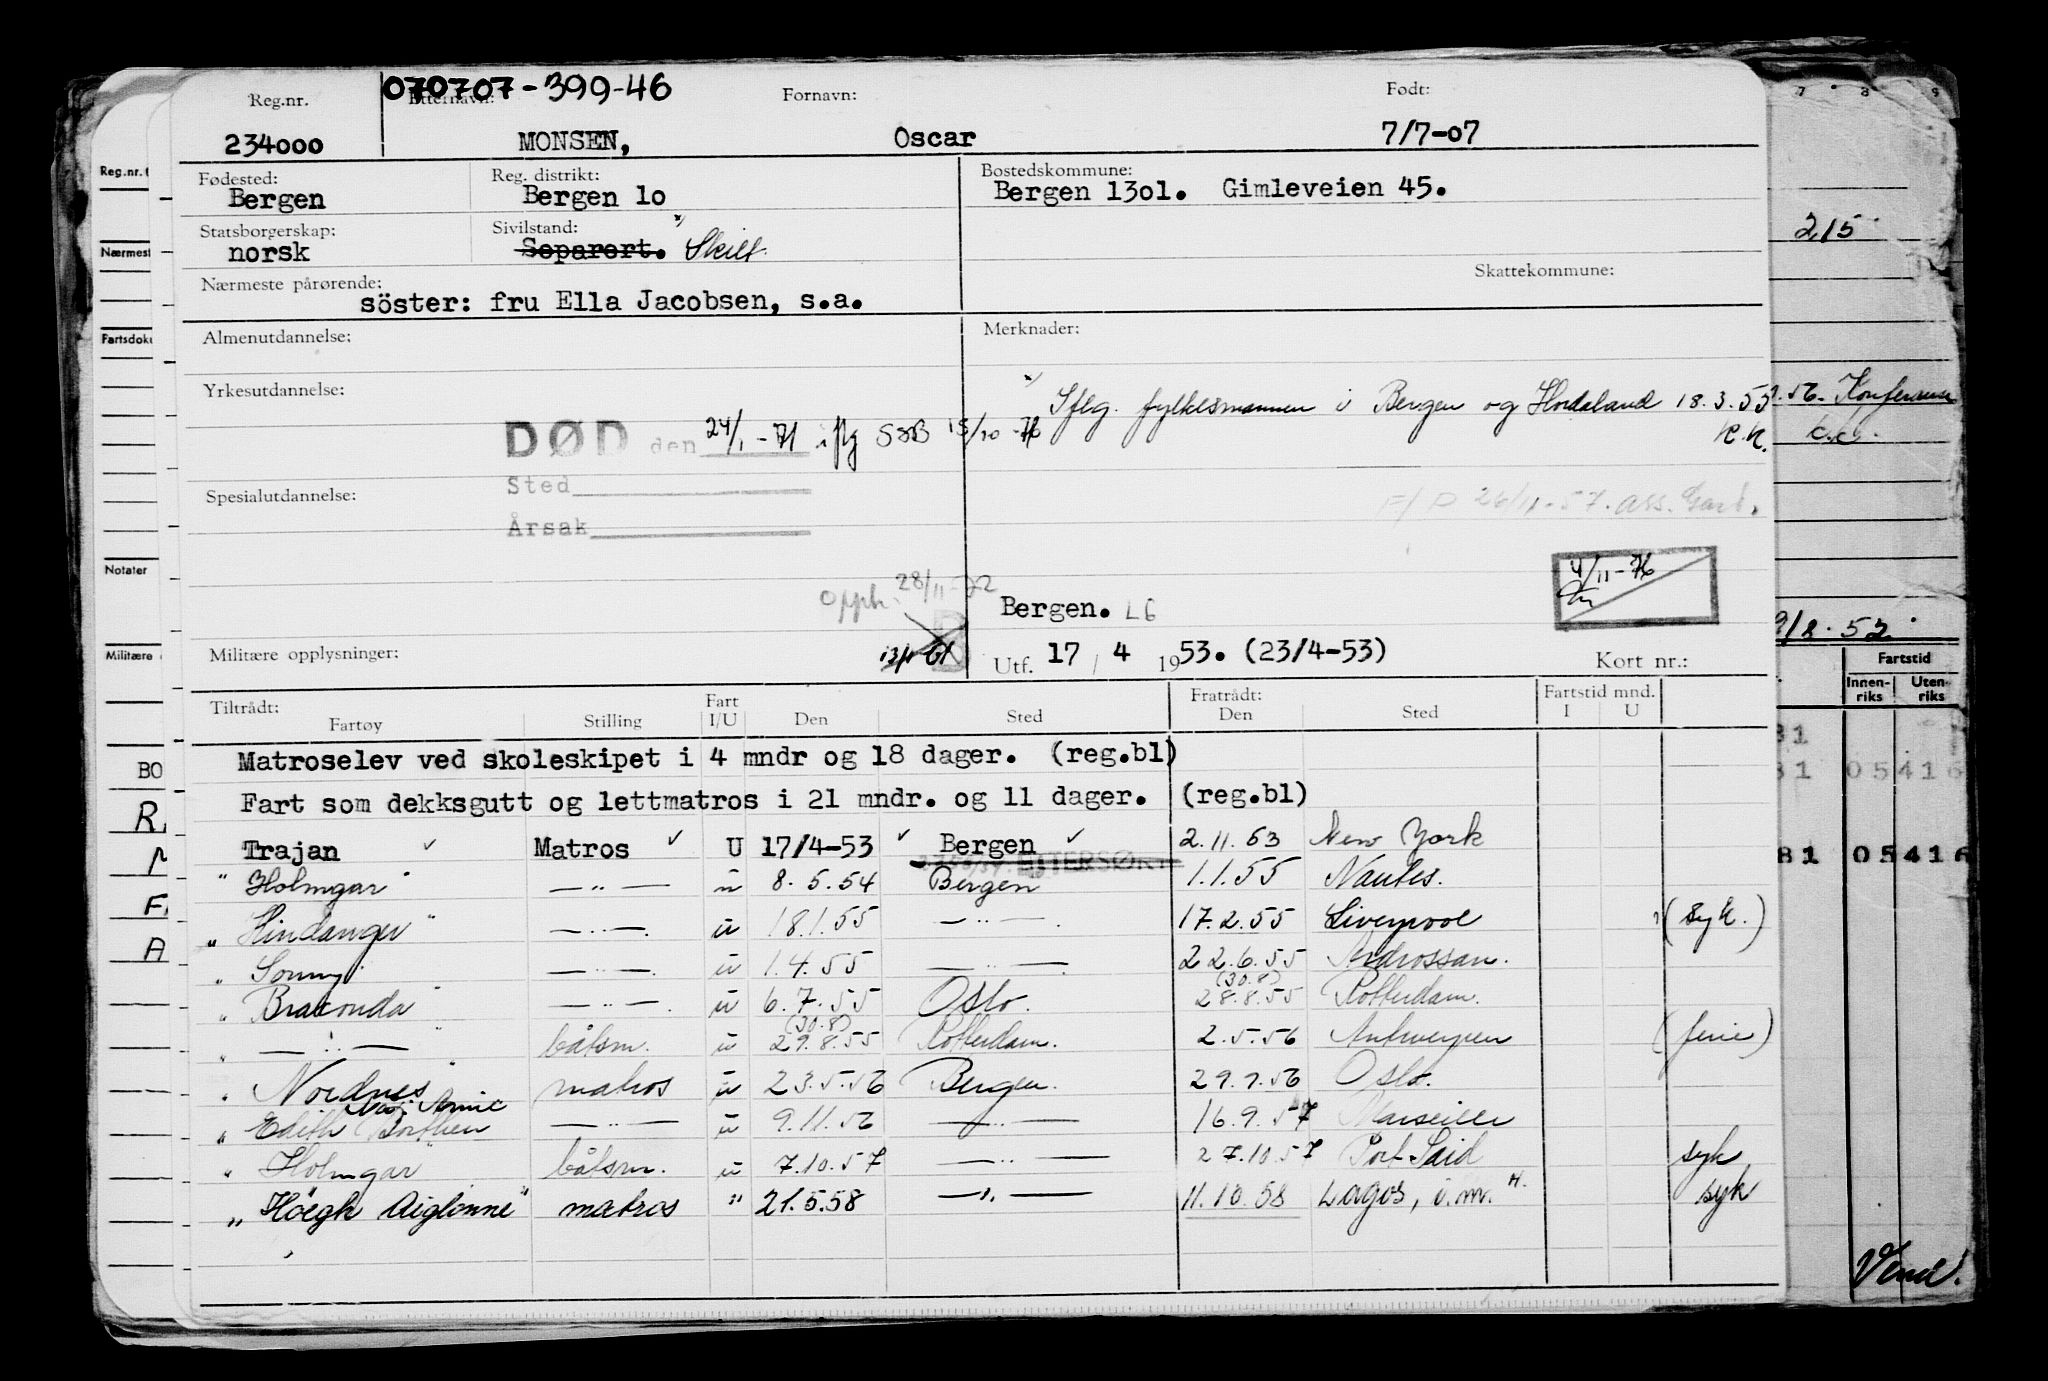 070707-399-46
Reg.nr. Etternavn: Fornavn: Født:
234000 MONSEN, Oscar 7/7-07
Fødested: Reg. distrikt: Bostedskommune:
Bergen Bergen 10 Bergen 1301. Gimleveien 45.
Statsborgerskap: Sivilstand:
norsk Separert. x) Skilt
Nærmeste pårørende: Skattekommune:
söster: fru Ella Jacobsen, s.a.
Almenutdannelse: Merknader:
Yrkesutdannelse:
x) Iflg. fylkesmannen i Bergen og Hordaland 18.3.55
K.K.
DØD den 24/1-71 iflg SSB 15/10-76
Spesialutdannelse: Sted
F/P 26/11-57. ass. Gart.
Årsak
4/11-76
Opph. 28/11-72
Bergen. LG
Militære opplysninger: Utf. 17 / 4 1953. (23/4-53) Kort nr.:
Tiltrådt: Fart Fratrådt: Fartstid mnd.
Fartøy Stilling I/U Den Sted Den Sted I U
Matroselev ved skoleskipet i 4 mndr og 18 dager. (reg.bl)
Fart som dekksgutt og lettmatros i 21 mndr. og 11 dager. (reg.bl)
Trajan ✓ Matros ✓ U 17/4-53 ✓ Bergen ✓ 2.11.53 New York
ETTERSØKT
" Holmgar " — " — u 8.5.54 Bergen 1.1.55 Nantes.
" Hindanger " — " — u 18.1.55 — " — 17.2.55 Liverpool (syk.)
" Sonny " — " — u 1.4.55 — " — 22.6.55 Ardrossan.
" Braconda " — " — u 6.7.55 Oslo. (30.8) 28.8.55 Rotterdam.
" — " — båtsm. u (30.8) 29.8.55 Rotterdam. 2.5.56 Antwerpen (ferie)
" Nordnes " matros u 23.5.56 Bergen. 29.9.56 Oslo.
" Edith Borthen — " — u 9.11.56 — " — 16.9.57 Marseille
" Holmgar " båtsm. u 7.10.57 — " — 27.10.57 Port Said syk
" Höegh Aiglonne " matros " 21.5.58 — " — 11.10.58 Lagos, i.m. syk
Reg.nr.
Nærmest
Fartsdoku
Notater
Militære
BO
R.
F.
A
7 8 9
215
56. Konferanse
c.c.
9/8.52
Fartstid
Innen-riks Uten-riks
81
81 05416
81 05416
Vend!